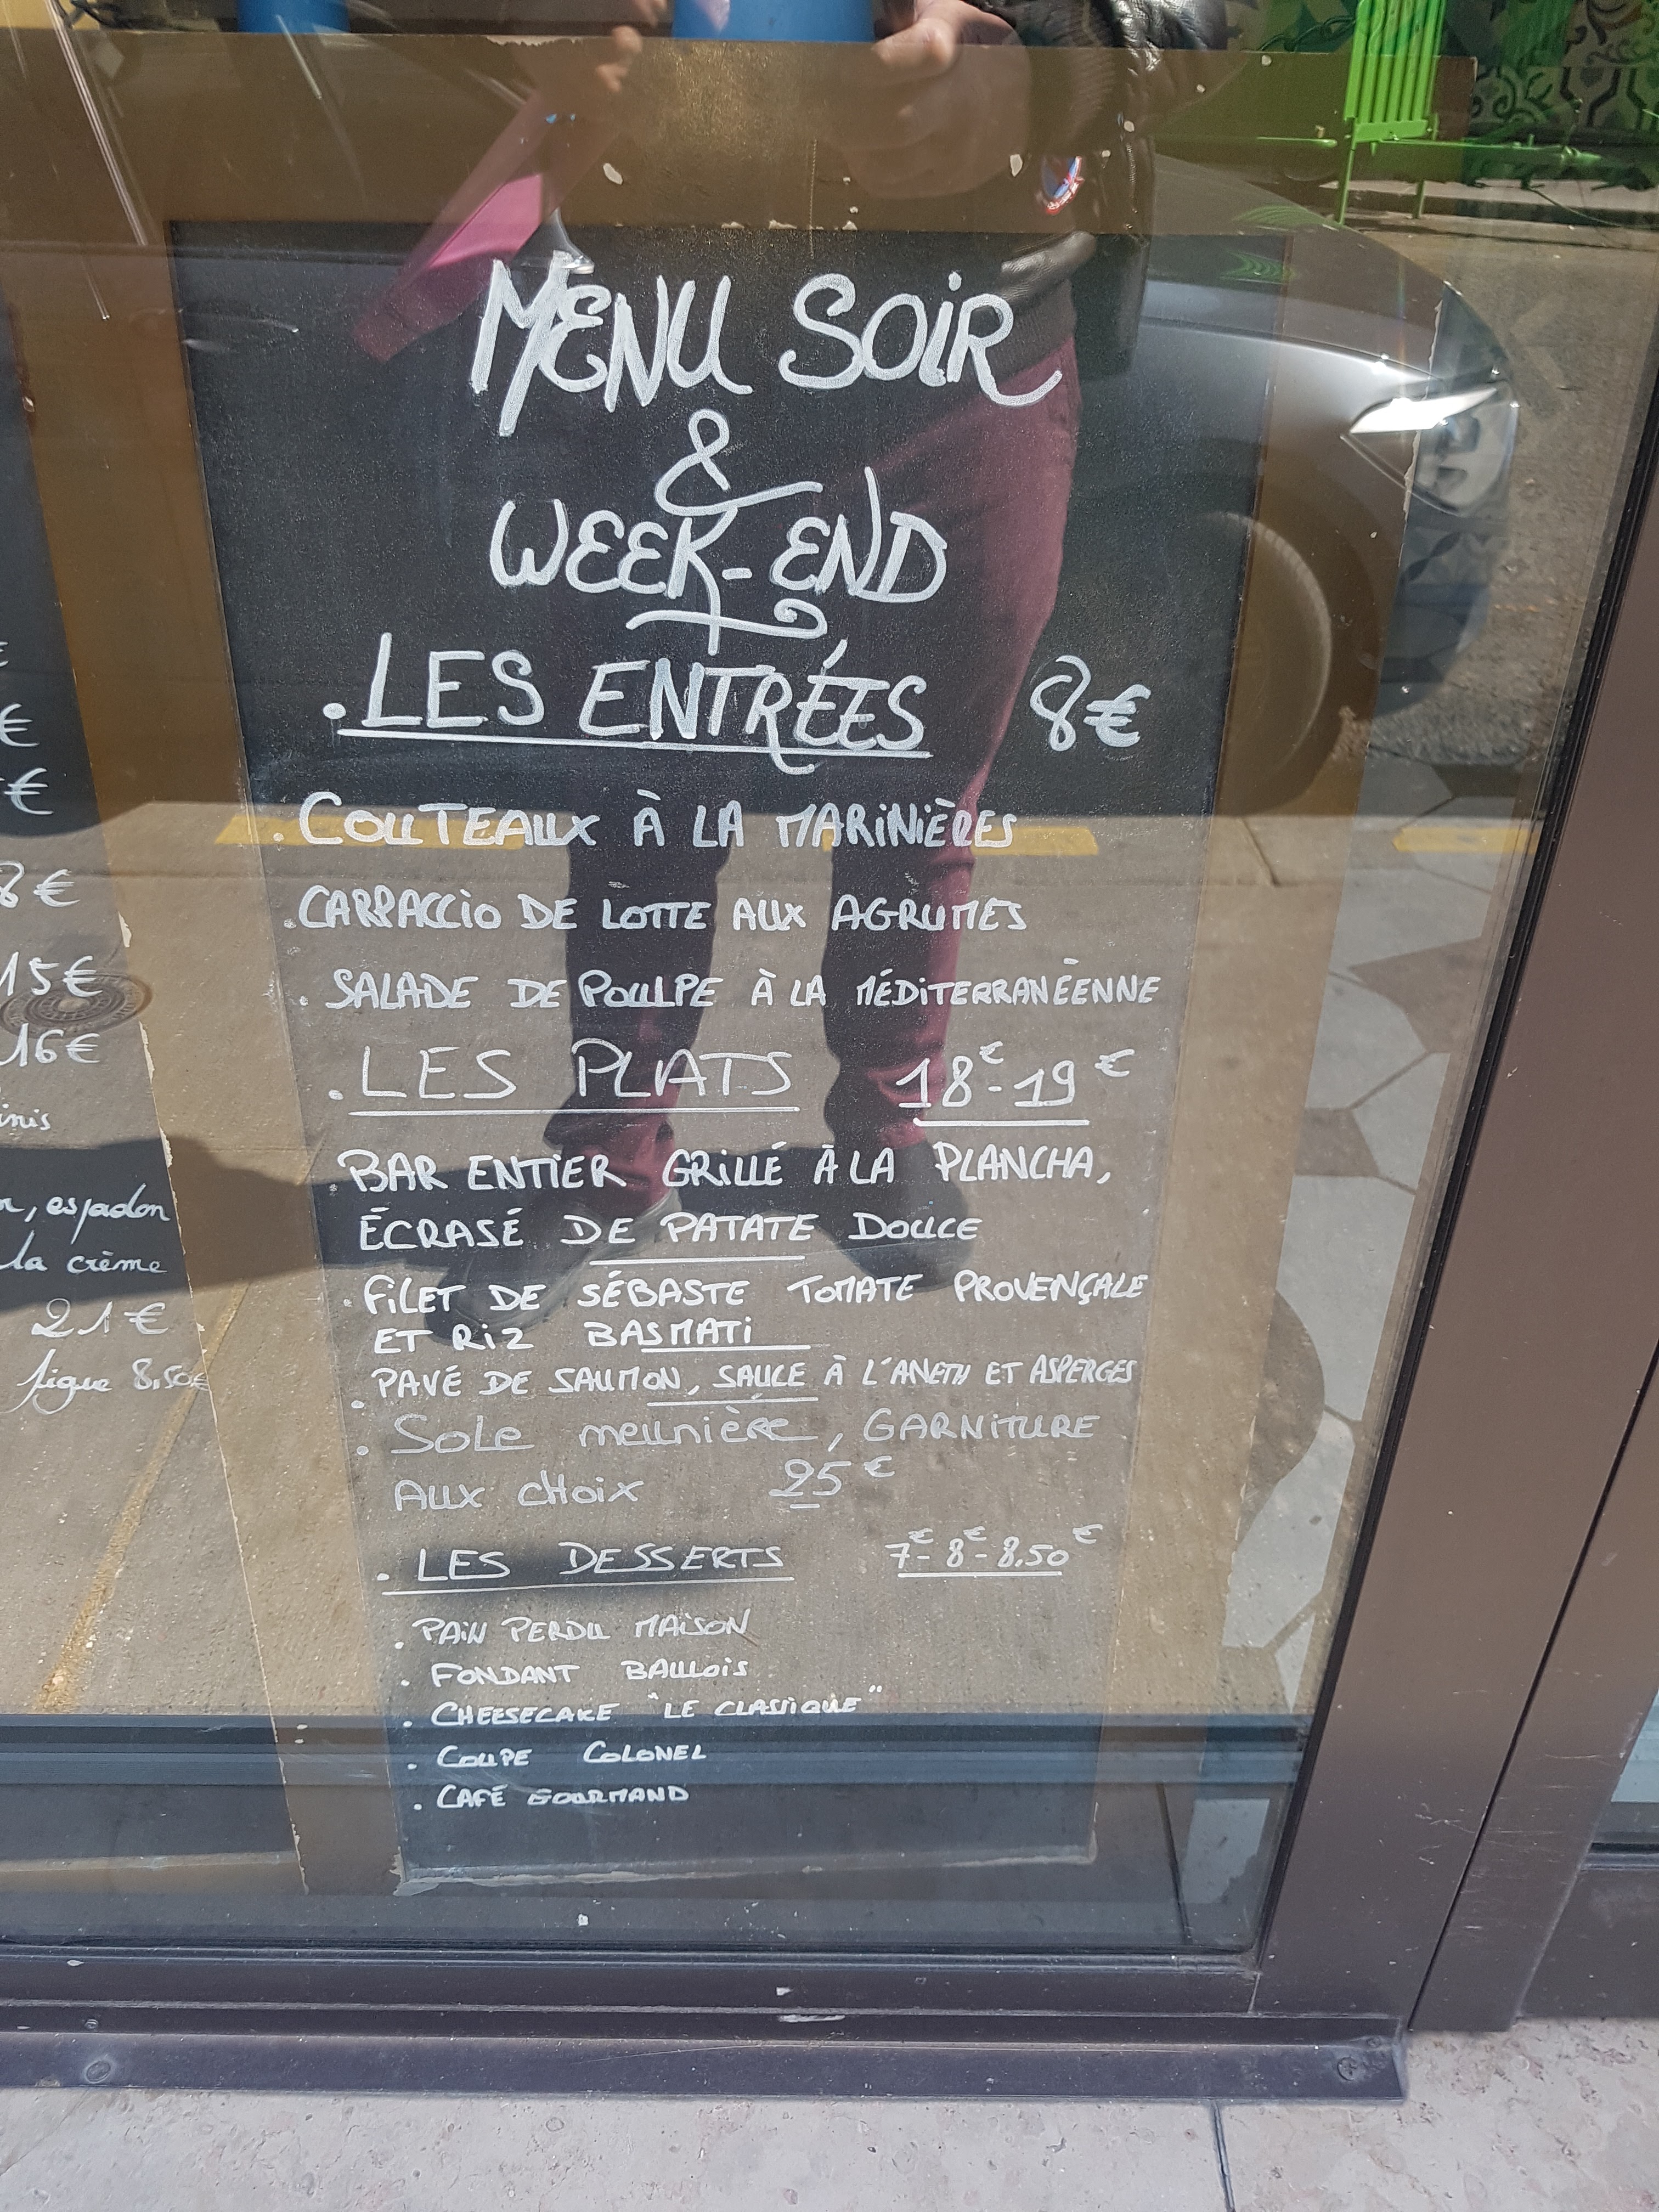 MENU SOIR
&
WEEK-END
. LES ENTRÉES 8€
. COUTEAUX À LA MARINIÈRES
. CARPACCIO DE LOTTE AUX AGRUMES
. SALADE DE POULPE À LA MÉDITERRANÉENNE
. LES PLATS 18€-19€
. BAR ENTIER GRILLÉ À LA PLANCHA,
ÉCRASÉ DE PATATE DOUCE
. FILET DE SÉBASTE TOMATE PROVENÇALE
ET RIZ BASMATI
. PAVÉ DE SAUMON, SAUCE À L'ANETH ET ASPERGES
. Sole meunière, GARNITURE
AUX CHOIX 25€
. LES DESSERTS 7€-8€-8,50€
. PAIN PERDU MAISON
. FONDANT BAULOIS
. CHEESECAKE "LE CLASSIQUE"
. COUPE COLONEL
. CAFÉ GOURMAND
€
€
8€
15€
16€
espadon
la crème
21€
figue 8,50€